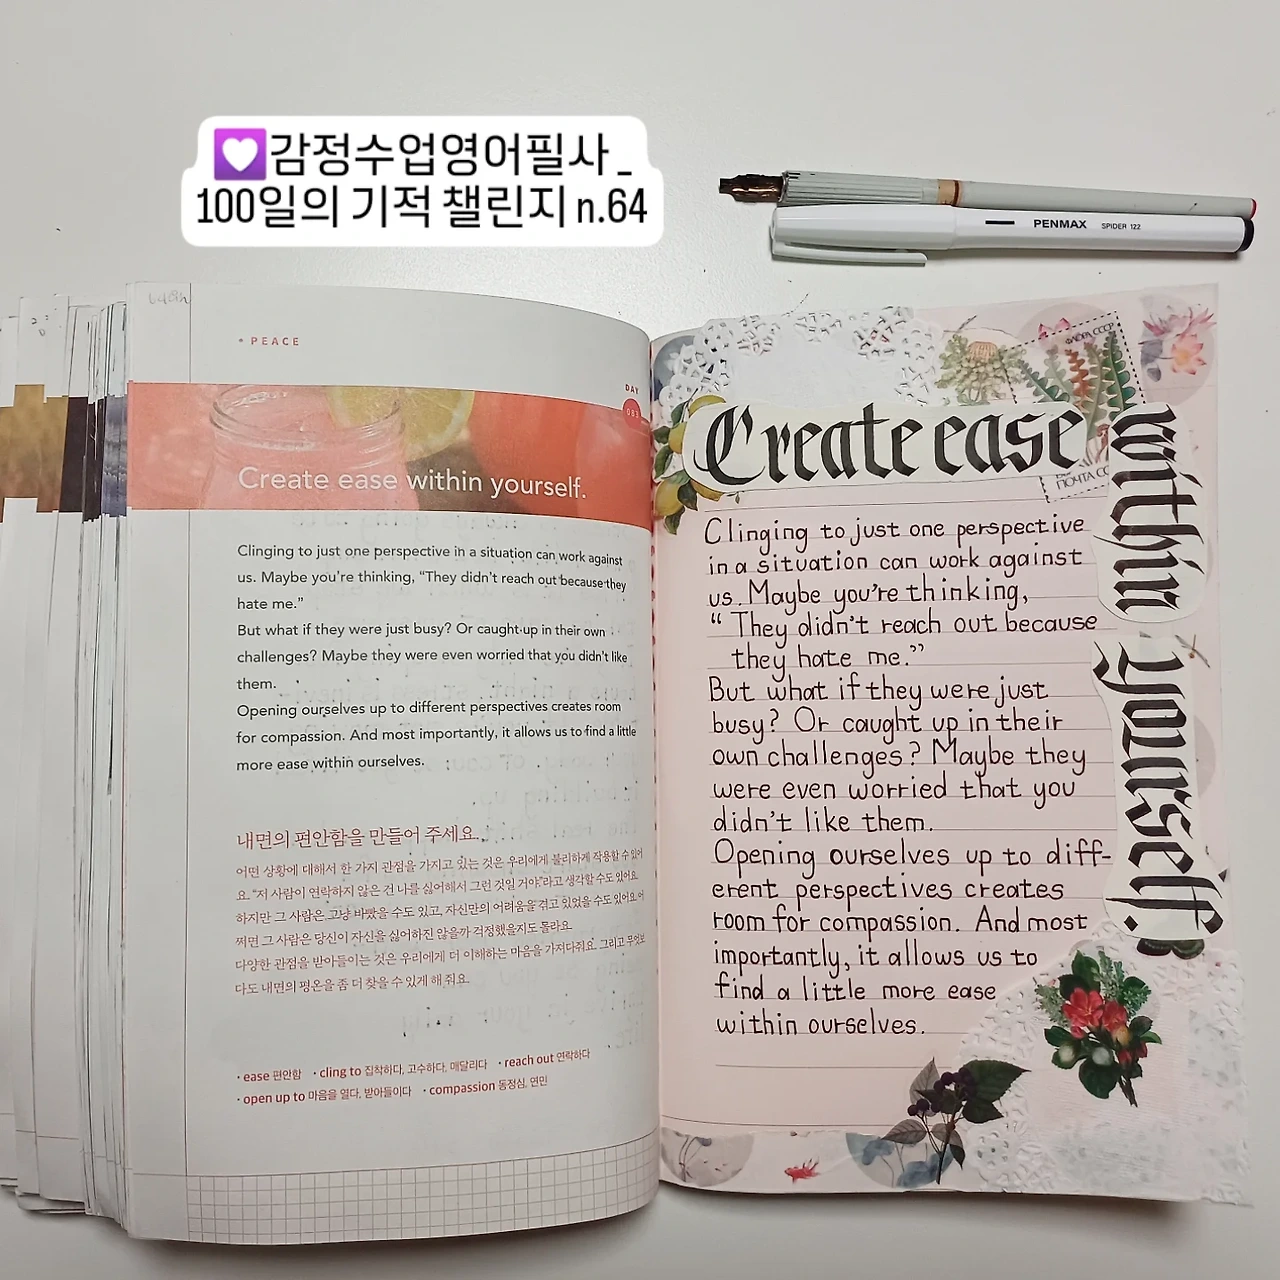 💟감정수업영어필사_
100일의 기적 챌린지 n.64
PENMAX SPIDER 122
• PEACE
DAY
083
Create ease within yourself.
Clinging to just one perspective in a situation can work against
us. Maybe you're thinking, “They didn't reach out because they
hate me.”
But what if they were just busy? Or caught up in their own
challenges? Maybe they were even worried that you didn't like
them.
Opening ourselves up to different perspectives creates room
for compassion. And most importantly, it allows us to find a little
more ease within ourselves.
내면의 편안함을 만들어 주세요.
어떤 상황에 대해서 한 가지 관점을 가지고 있는 것은 우리에게 불리하게 작용할 수 있어
요. “저 사람이 연락하지 않은 건 나를 싫어해서 그런 것일 거야.”라고 생각할 수도 있어요.
하지만 그 사람은 그냥 바빴을 수도 있고, 자신만의 어려움을 겪고 있었을 수도 있어요. 어
쩌면 그 사람은 당신이 자신을 싫어하진 않을까 걱정했을지도 몰라요.
다양한 관점을 받아들이는 것은 우리에게 더 이해하는 마음을 가져다줘요. 그리고 무엇보
다도 내면의 평온을 좀 더 찾을 수 있게 해 줘요.
• ease 편안함 • cling to 집착하다, 고수하다, 매달리다 • reach out 연락하다
• open up to 마음을 열다, 받아들이다 • compassion 동정심, 연민
ФЛОРА СССР
ПОЧТА СС
Create ease
within
yourself.
Clinging to just one perspective
in a situation can work against
us. Maybe you're thinking,
“ They didn't reach out because
they hate me.”
But what if they were just
busy? Or caught up in their
own challenges? Maybe they
were even worried that you
didn't like them.
Opening ourselves up to diff-
erent perspectives creates
room for compassion. And most
importantly, it allows us to
find a little more ease
within ourselves.